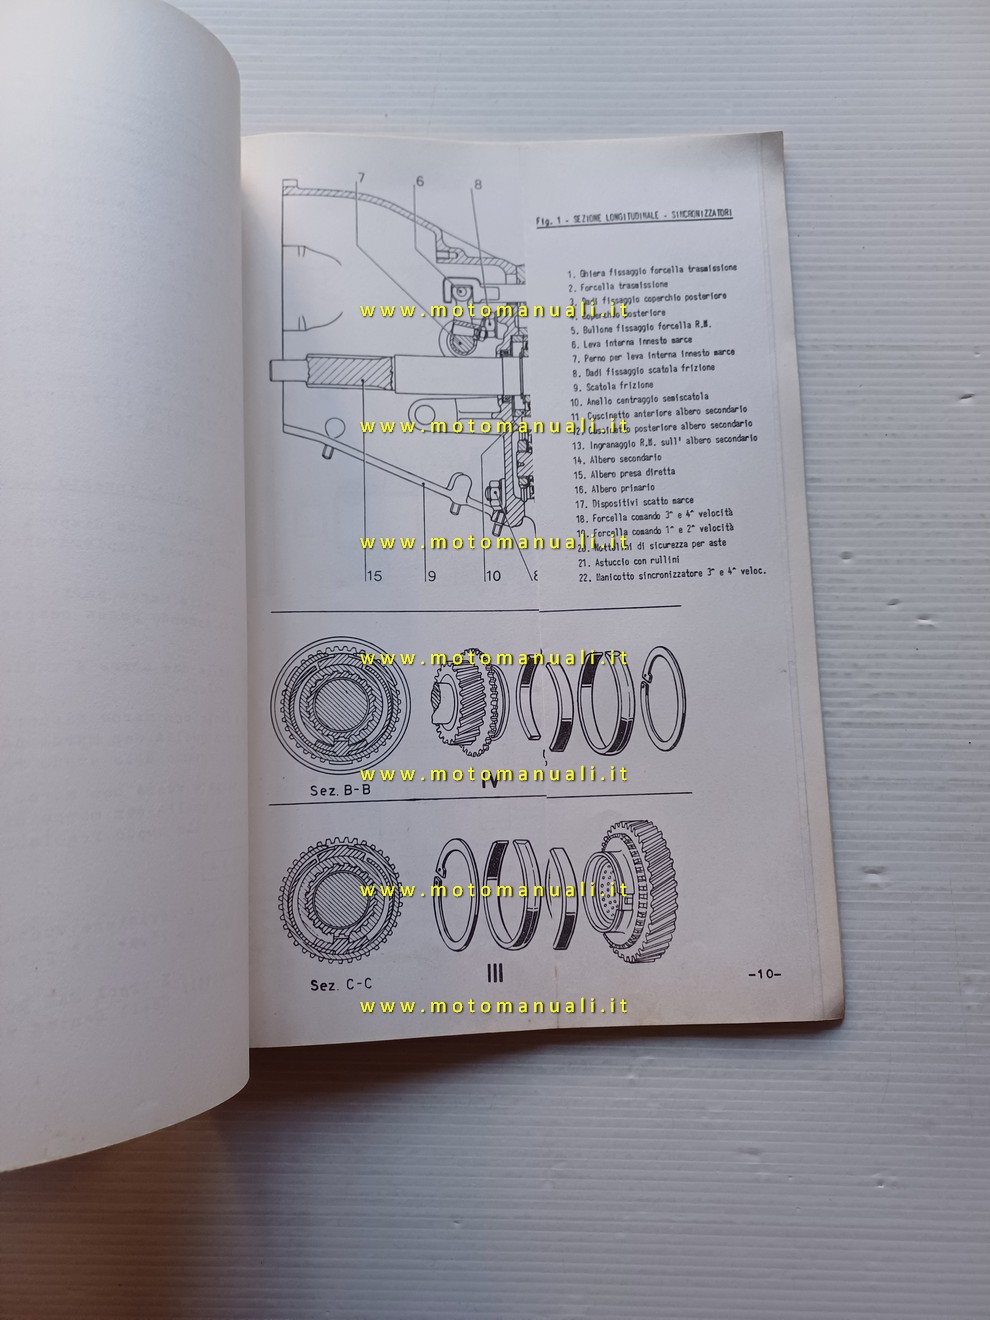 7 6 8
Fig. 1 - SEZIONE LONGITUDINALE - SINCRONIZZATORI
1. Ghiera fissaggio forcella trasmissione
2. Forcella trasmissione
3. Dadi fissaggio coperchio posteriore
www.motomanuali.it
4. Coperchio posteriore
5. Bullone fissaggio forcella R.M.
6. Leva interna innesto marce
7. Perno per leva interna innesto marce
8. Dadi fissaggio scatola frizione
9. Scatola frizione
10. Anello centraggio semiscatola
11. Cuscinetto anteriore albero secondario
www.motomanuali.it
12. Cuscinetto posteriore albero secondario
13. Ingranaggio R.M. sull' albero secondario
14. Albero secondario
15. Albero presa diretta
16. Albero primario
17. Dispositivi scatto marce
18. Forcella comando 3^ e 4^ velocità
19. Forcella comando 1^ e 2^ velocità
www.motomanuali.it
20. Nottolini di sicurezza per aste
21. Astuccio con rullini
22. Manicotto sincronizzatore 3^ e 4^ veloc.
15 9 10 8
www.motomanuali.it
www.motomanuali.it
Sez. B-B IV
www.motomanuali.it
Sez. C-C III
-10-
www.motomanuali.it